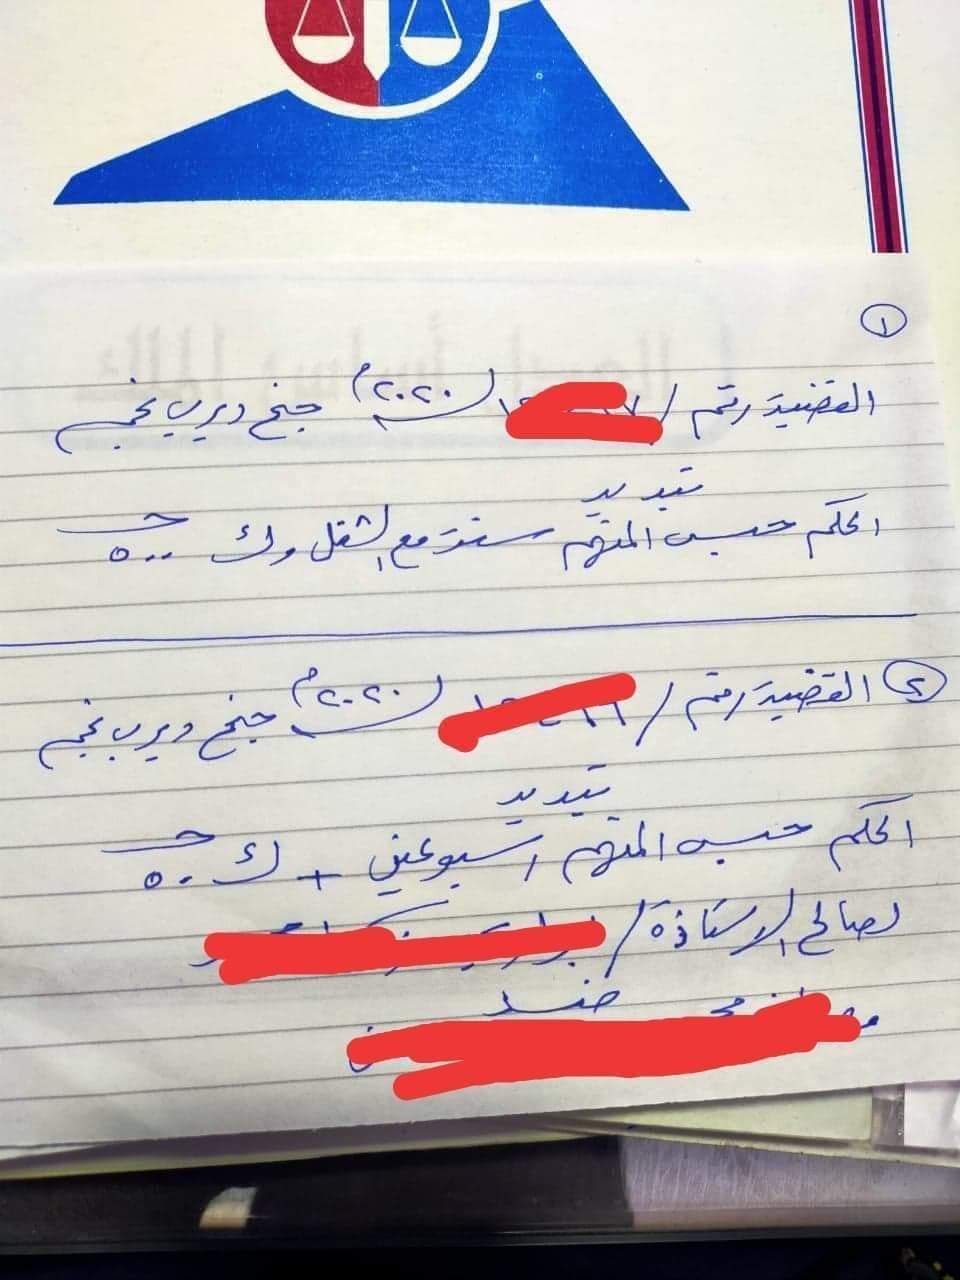 ١
القضية رقم / لسنة ٢٠٢٠م جنح ديرب نجم
تبديد
الحكم حبس المتهم سنة مع الشغل وك ٥٠٠ جـ
٢ القضية رقم / لسنة ٢٠٢٠م جنح ديرب نجم
تبديد
الحكم حبس المتهم اسبوعين + ك ٥٠ جـ
لصالح الاستاذة /
ضد